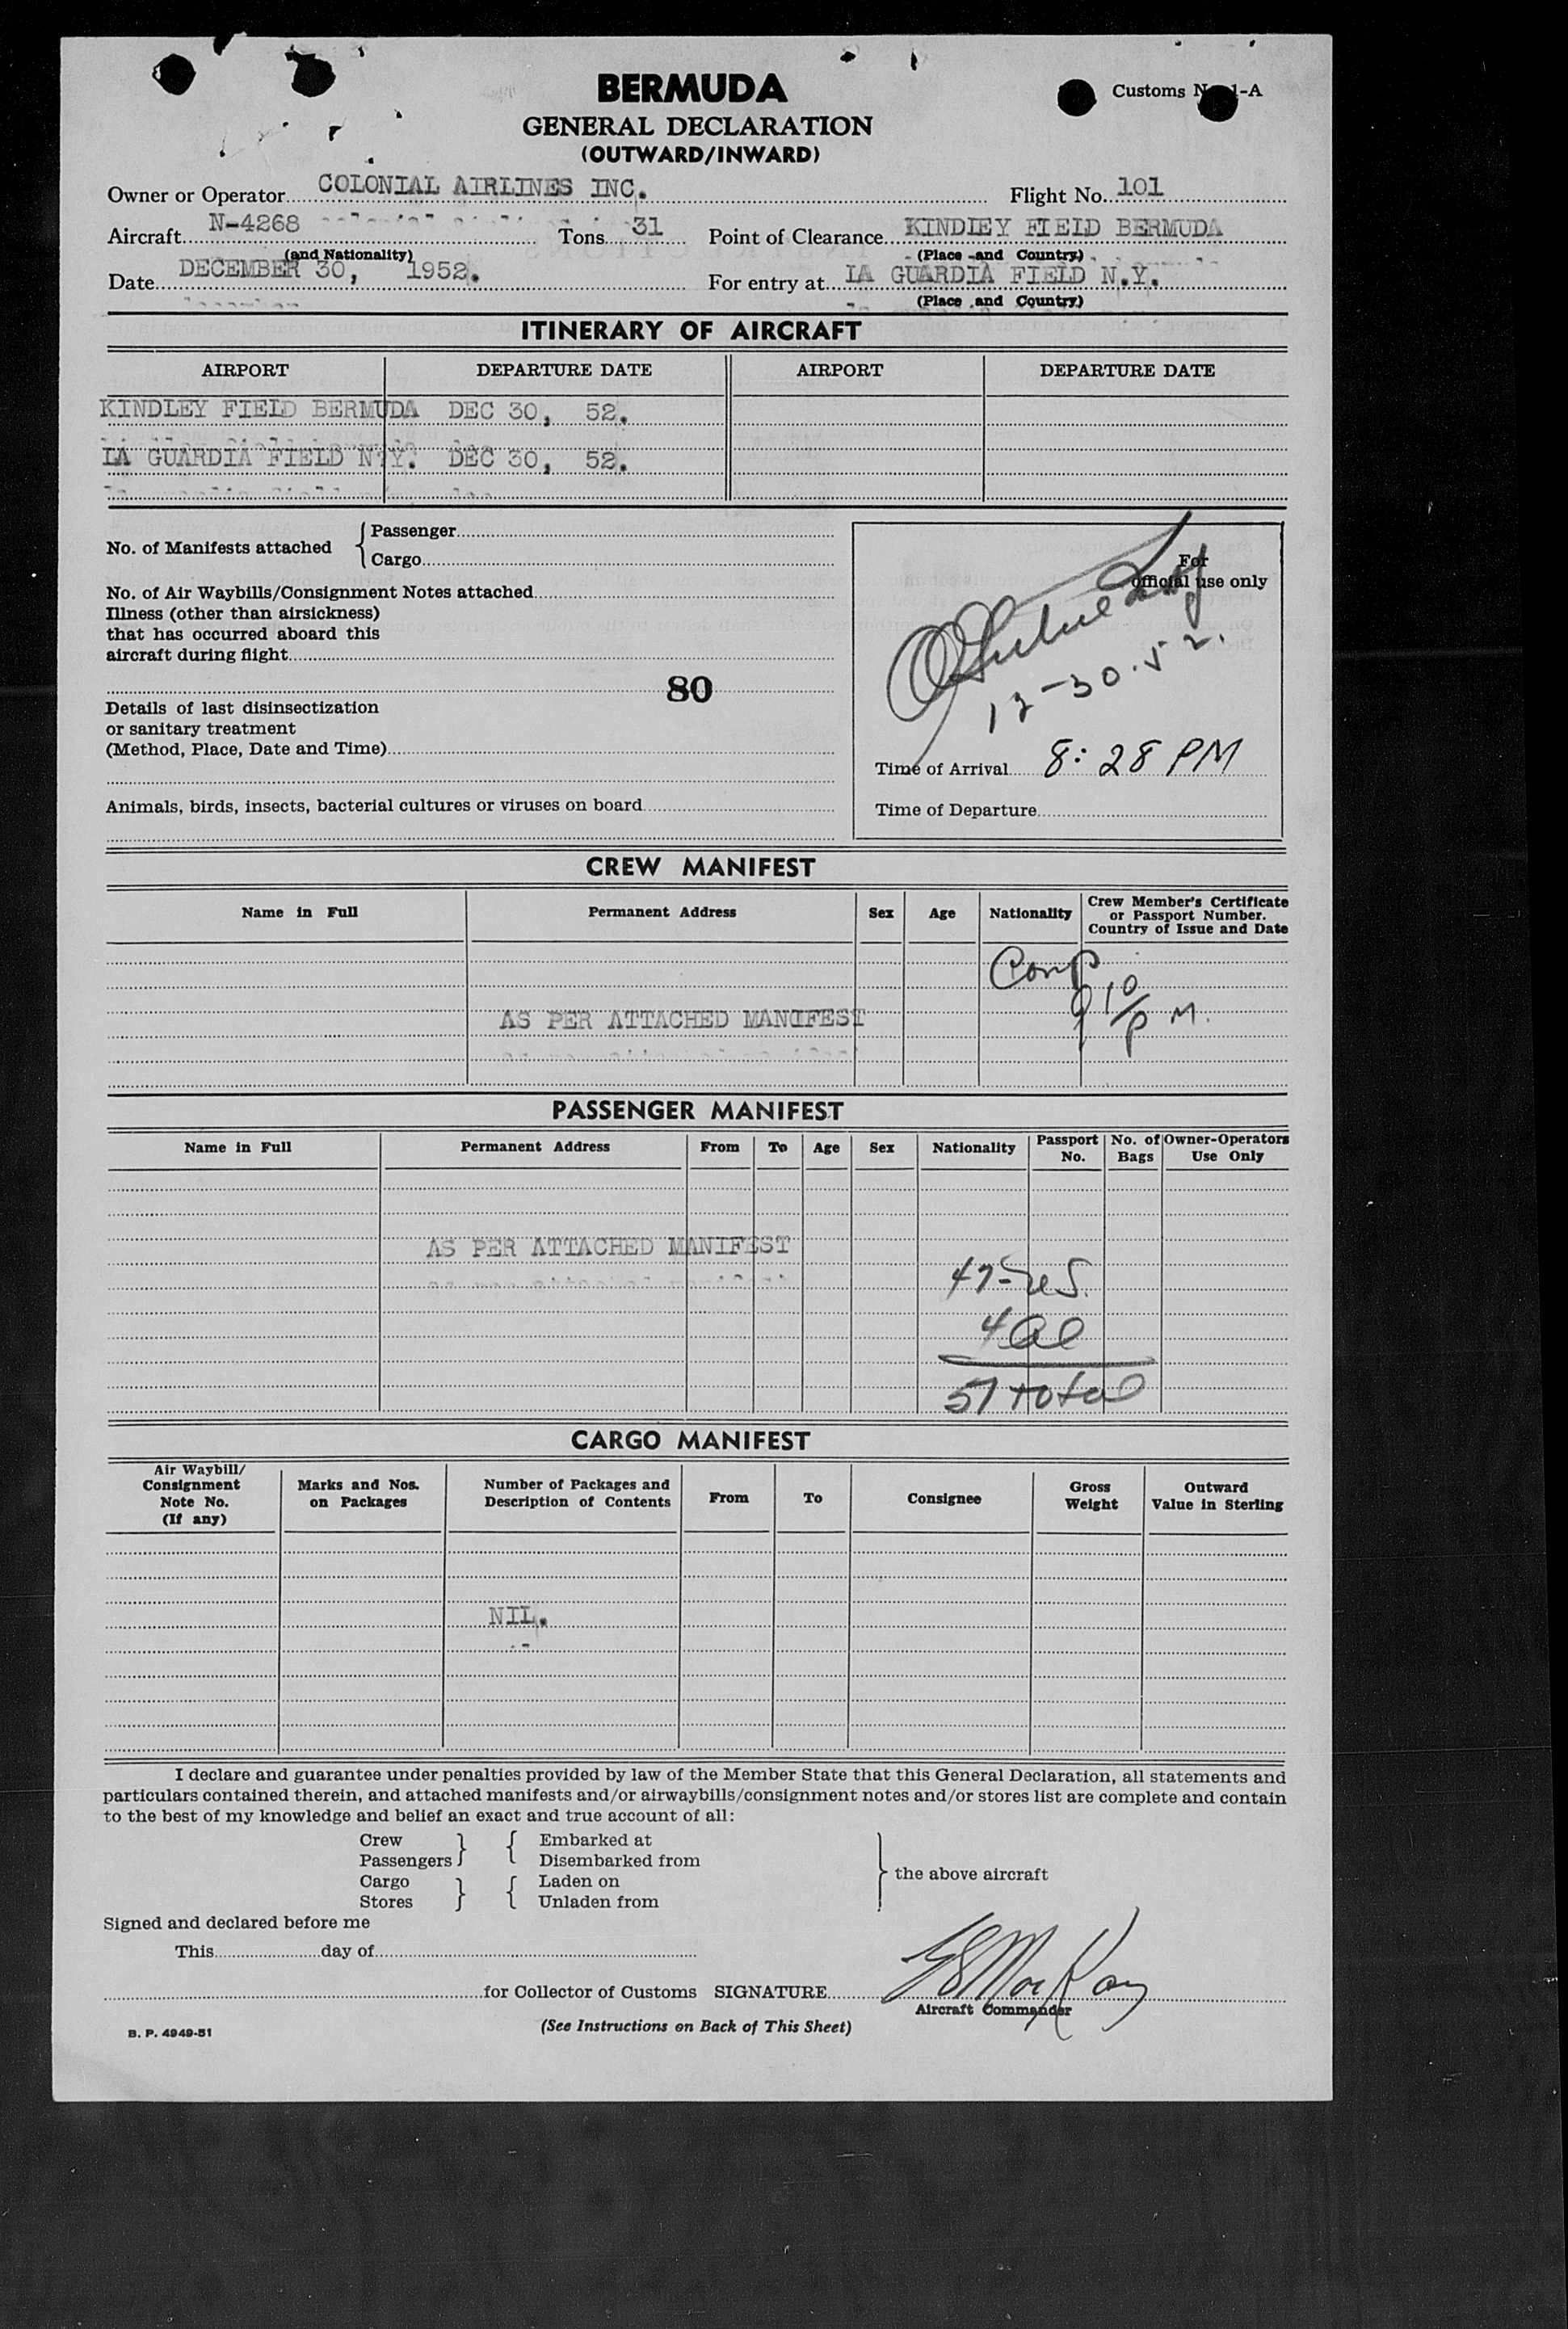 BERMUDA
Customs N 1-A
GENERAL DECLARATION
(OUTWARD/INWARD)
Owner or Operator COLONIAL AIRLINES INC. Flight No. 101
Aircraft N-4268 Tons 31 Point of Clearance KINDLEY FIELD BERMUDA
(and Nationality) (Place and Country)
Date DECEMBER 30, 1952. For entry at LA GUARDIA FIELD N.Y.
(Place and Country)
ITINERARY OF AIRCRAFT
AIRPORT DEPARTURE DATE AIRPORT DEPARTURE DATE
KINDLEY FIELD BERMUDA DEC 30, 52.
LA GUARDIA FIELD N.Y. DEC 30, 52.
No. of Manifests attached { Passenger
Cargo
No. of Air Waybills/Consignment Notes attached
Illness (other than airsickness)
that has occurred aboard this
aircraft during flight
80
Details of last disinsectization
or sanitary treatment
(Method, Place, Date and Time)
Animals, birds, insects, bacterial cultures or viruses on board
For
official use only
12-30-52.
Time of Arrival 8:28 PM
Time of Departure
CREW MANIFEST
Name in Full Permanent Address Sex Age Nationality Crew Member's Certificate or Passport Number. Country of Issue and Date
Comp
9 10/P M.
AS PER ATTACHED MANIFEST
PASSENGER MANIFEST
Name in Full Permanent Address From To Age Sex Nationality Passport No. No. of Bags Owner-Operators Use Only
AS PER ATTACHED MANIFEST
47-US.
4 al
51 total
CARGO MANIFEST
Air Waybill/ Consignment Note No. (If any) Marks and Nos. on Packages Number of Packages and Description of Contents From To Consignee Gross Weight Outward Value in Sterling
NIL.
I declare and guarantee under penalties provided by law of the Member State that this General Declaration, all statements and
particulars contained therein, and attached manifests and/or airwaybills/consignment notes and/or stores list are complete and contain
to the best of my knowledge and belief an exact and true account of all:
Crew } { Embarked at
Passengers Disembarked from
Cargo } { Laden on } the above aircraft
Stores Unladen from
Signed and declared before me
This day of
for Collector of Customs SIGNATURE
E S MacKay
Aircraft Commander
B. P. 4949-51
(See Instructions on Back of This Sheet)